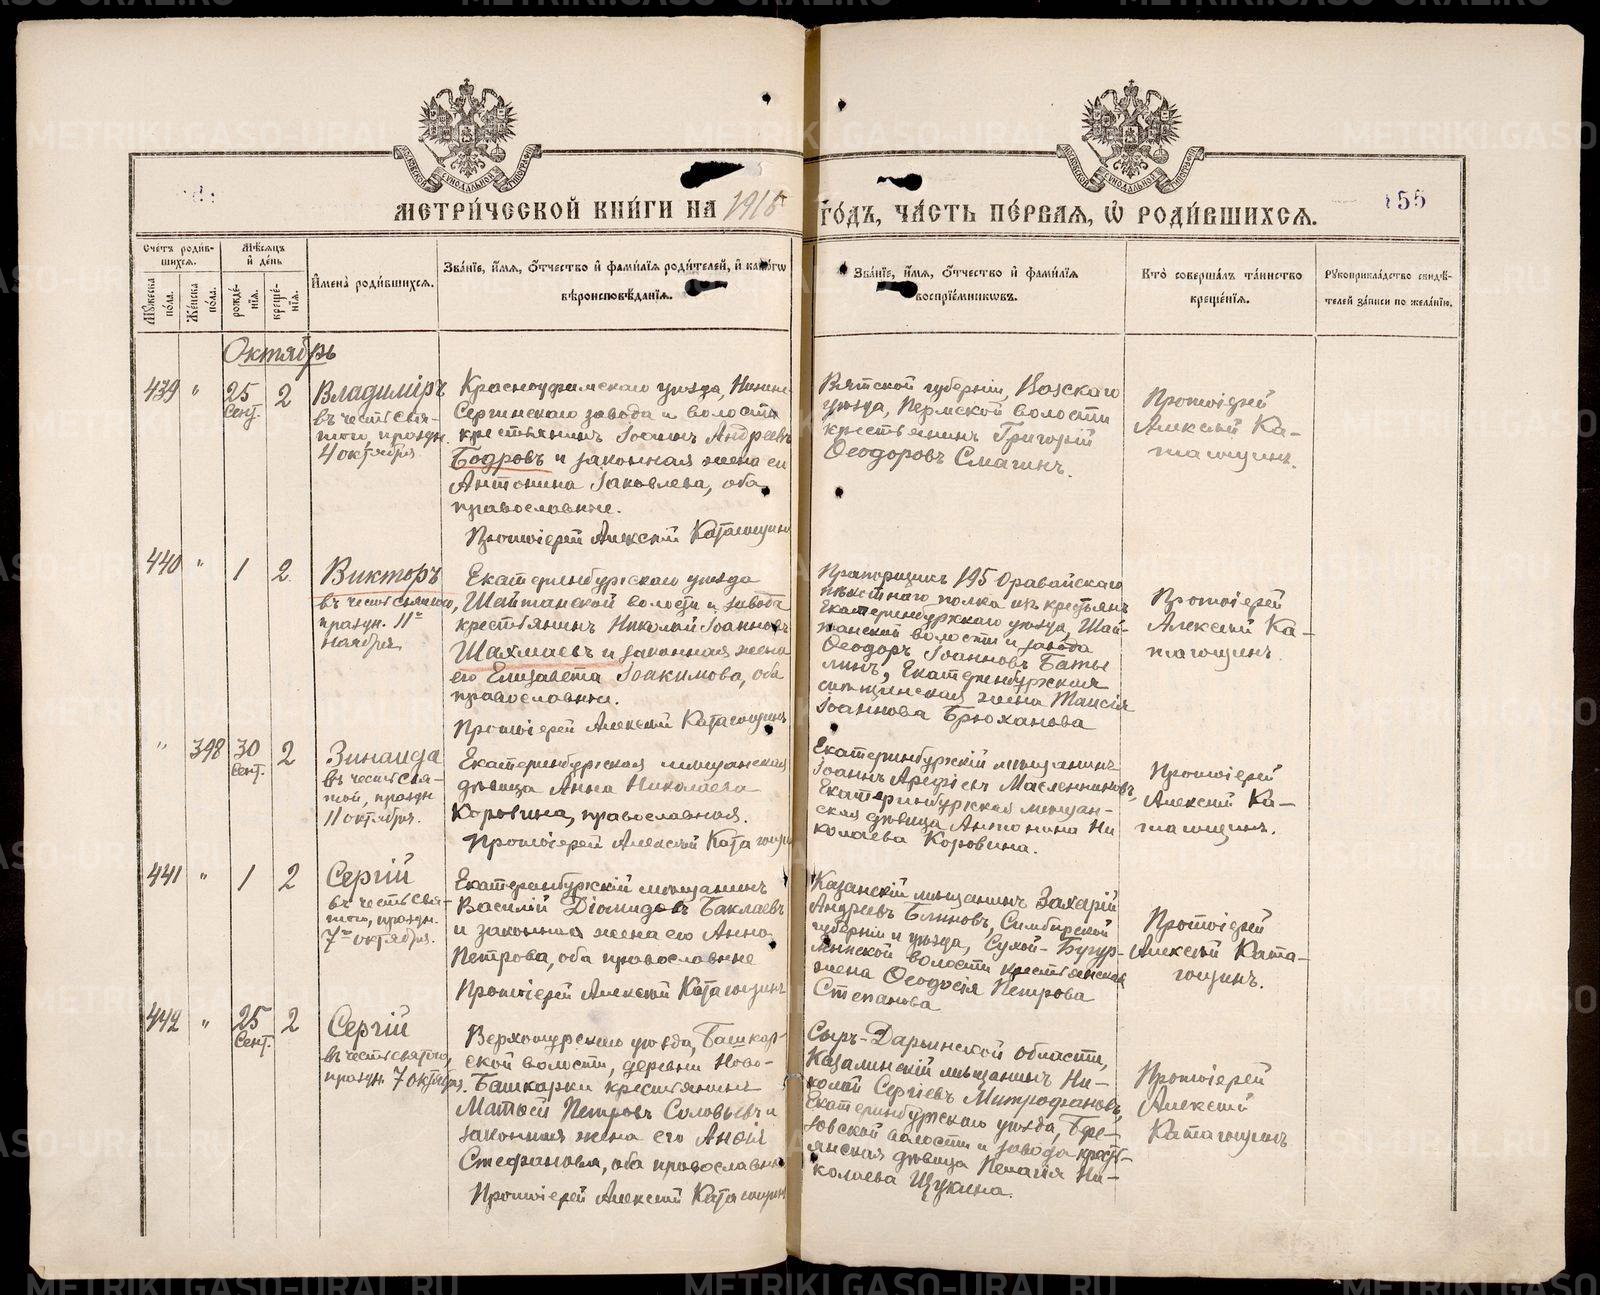 МЕТРИ́ЧЕСКОЙ КНИ́ГИ НА 1916
ГО́ДЪ, ЧА́СТЬ ПЕ́РВАЯ, Ѡ҆ РОДИ́ВШИХСЯ.
155
Сче́тъ роди́в-
шихся.
Мѣ́сяцъ
и҆ де́нь
Му́жеска
по́ла.
Же́нска
по́ла.
рожде́-
нїя.
креще́-
нїя.
И҆мена̀ роди́вшихся.
Зва́нїе, и҆́мя, ѻ҆́тчество и҆ фами́лїя роди́телей, и҆ како́гѡ
вѣроисповѣ́данїя.
Зва́нїе, и҆́мя, ѻ҆́тчество и҆ фами́лїя
воспрїе́мникѡвъ.
Кто̀ соверша́лъ та́инство
креще́нїя.
Рꙋкоприкла́дство свидѣ́-
телей за́писи по жела́нїю.
Октябрь
439 " 25 Сент. 2
Владиміръ
въ честь свя-
того, праздн.
4 октября
Красноуфимскаго уѣзда, Нижне-
Сергинскаго завода и волости
крестьянинъ Іоаннъ Андреевъ
Бодровъ и законная жена его
Антонина Іаковлева, оба
православные.
Протоіерей Алексій Катагощинъ
Вятской губерніи,
уѣзда, Пермской волости
крестьянинъ Григорій
Ѳеодоровъ Смагинъ.
Протоіерей
Алексій Ка-
тагощинъ.
440 " 1 2
Викторъ
въ честь святого,
праздн. 11го
ноября
Екатеринбургскаго уѣзда
Шайтанской волости и завода
крестьянинъ Николай Іоанновъ
Шахмаевъ и законная жена
его Елизавета Іоакимова, оба
православные.
Протоіерей Алексій Катагощинъ
Прапорщикъ 195 Оровайскаго
пѣхотнаго полка изъ крестьянъ
Екатеринбургскаго уѣзда, Шай-
танской волости и завода
Ѳеодоръ Іоанновъ Баты
линъ, Екатеринбургская
жена Таисія
Іоаннова Брюханова
Протоіерей
Алексій Ка-
тагощинъ.
" 398 30 Сент. 2
Зинаида
въ честь свя-
той, праздн
11 октября.
Екатеринбургская мѣщанская
дѣвица Анна Николаева
Коровина, православная.
Протоіерей Алексій Катагощинъ
Екатеринбургскій мѣщанинъ
Іоаннъ Арефьевъ Масленниковъ,
Екатеринбургская мѣщан-
ская дѣвица Антонина Ни
колаева Коровина.
Протоіерей
Алексій Ка-
тагощинъ.
441 " 1 2
Сергій
въ честь свя-
того, праздн.
7го октября.
Екатеринбургскій мѣщанинъ
Василій Діомидовъ Баклаевъ
и законная жена его Анна
Петрова, оба православные
Протоіерей Алексій Катагощинъ
Казанскій мѣщанинъ Захарій
Андреевъ Блиновъ, Симбирской
губерніи и уѣзда, Сухой-Бугур-
линской волости крестьянская
жена Ѳеодосія Петрова
Степанова
Протоіерей
Алексій Ката-
гощинъ.
442 " 25 Сент. 2
Сергій
въ честь святого,
праздн. 7 октября.
Верхотурскаго уѣзда, Башкар-
ской волости, деревни Ново-
Башкарки крестьянинъ
Матѳей Петровъ Соловьевъ и
законная жена его Анѳія
Стефановна, оба православные
Протоіерей Алексій Катагощинъ
Сыръ-Дарьинской области,
Казалинскій мѣщанинъ Ни-
колай Сергіевъ Митрофановъ,
Екатеринбургскаго уѣзда, Бре-
зовской волости и завода крестъ-
янская дѣвица Пелагія Ни-
колаева Щукина.
Протоіерей
Алексій
Катагощинъ
METRIKI.GASO-URAL.RU